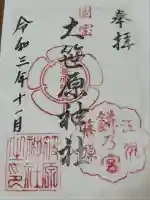 奉拝
国宝
大笹原神社
令和三年十二月
江州
篠原
鏡乃宮